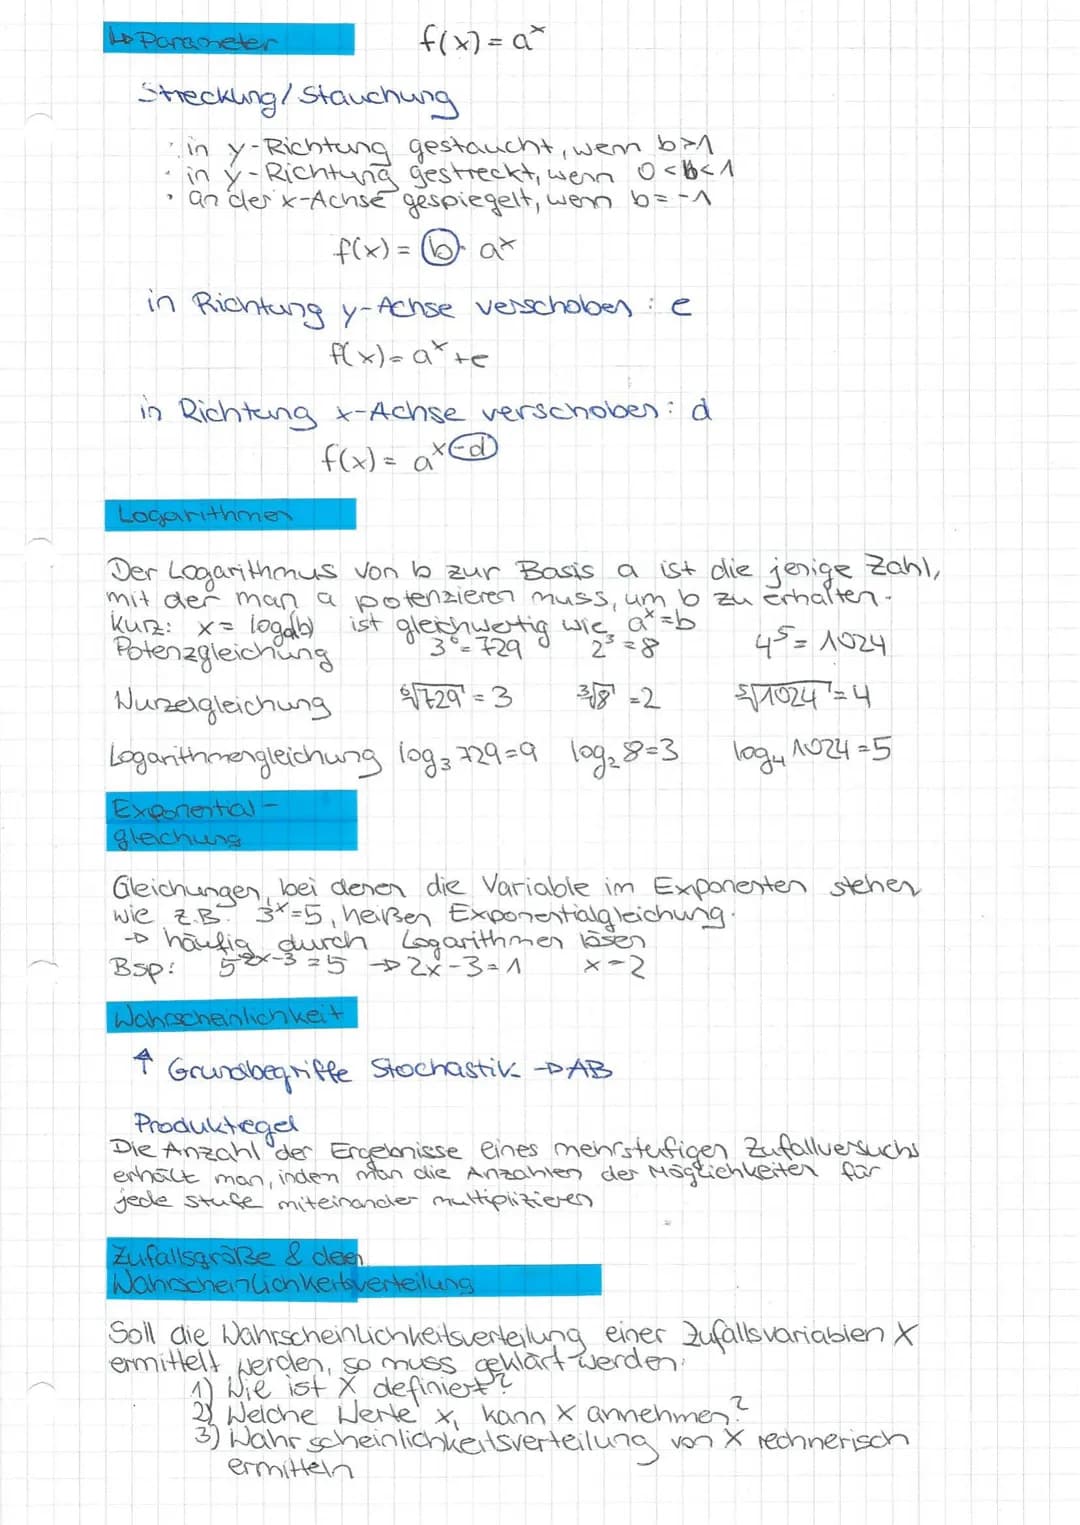 ↳ Parameter f(x) = aˣ
Streckung/Stauchung
· in y-Richtung gestaucht, wenn b>1
· in y-Richtung gestreckt, wenn 0<b<1
· an der x-Achse gespiegelt, wenn b=-1
f(x) = b · aˣ
in Richtung y-Achse verschoben : e
f(x) = aˣ+e
in Richtung x-Achse verschoben: d
f(x) = aˣ⁻ᵈ
Logarithmen
Der Logarithmus von b zur Basis a ist die jenige Zahl,
mit der man a potenzieren muss, um b zu erhalten.
Kurz: x = logₐ(b) ist gleichwertig wie aˣ=b
Potenzgleichung 3⁶=729 2³=8 4⁵=1024
Wurzelgleichung ⁶√729=3 ³√8=2 ⁵√1024=4
Logarithmengleichung log₃ 729=9 log₂ 8=3 log₄ 1024=5
Exponential-
gleichung
Gleichungen, bei denen die Variable im Exponenten stehen
wie z.B. 3ˣ=5, heißen Exponentialgleichung.
→ häufig durch Logarithmen lösen
Bsp: 5²ˣ⁻³=5 → 2x-3=1 x=2
Wahrscheinlichkeit
↑ Grundbegriffe Stochastik → AB
Produktregel
Die Anzahl der Ergebnisse eines mehrstufigen Zufallversuchs
erhält man, indem man die Anzahlen der Möglichkeiten für
jede Stufe miteinander multiplizieren
Zufallsgröße & deen
Wahrscheinlichkeitsverteilung
Soll die Wahrscheinlichkeitsverteilung einer Zufallsvariablen X
ermittelt werden, so muss geklärt werden:
1) Wie ist X definiert?
2) Welche Werte xᵢ kann X annehmen?
3) Wahrscheinlichkeitsverteilung von X rechnerisch
ermitteln